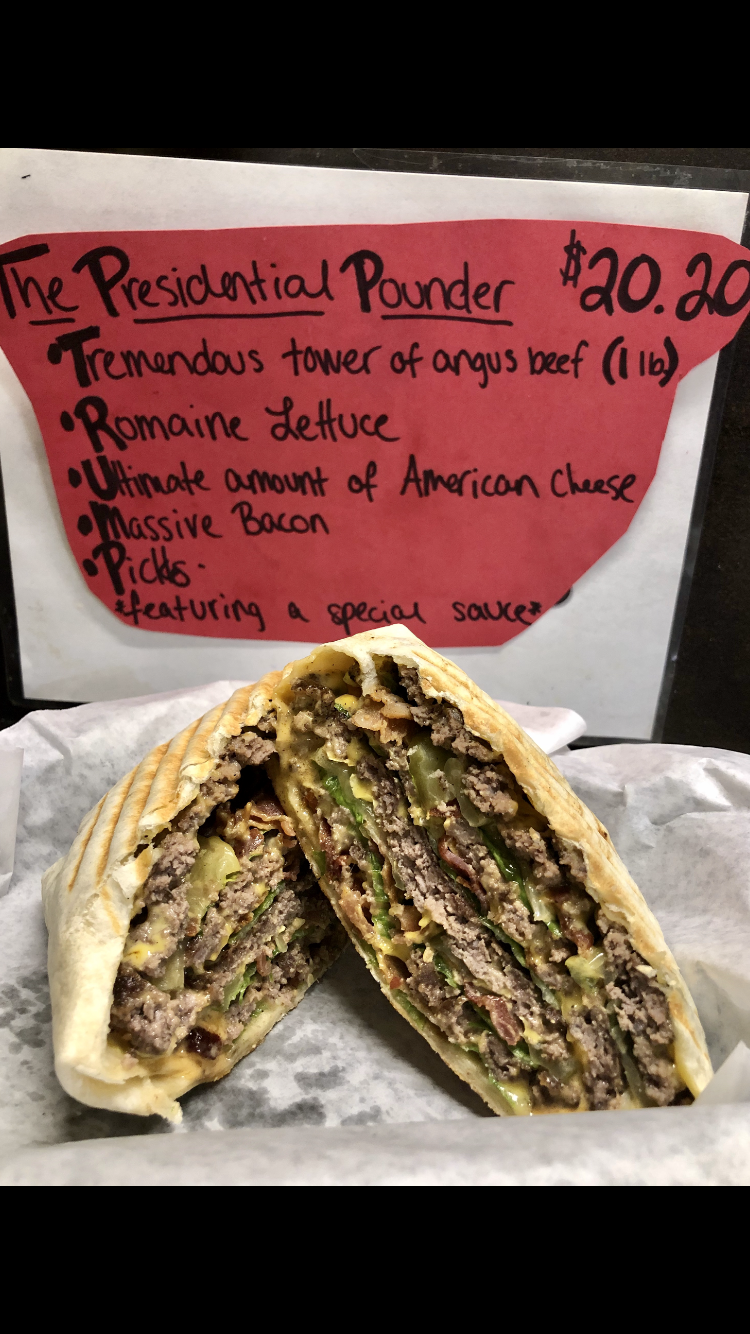 The Presidential Pounder $20.20
•Tremendous tower of angus beef (1 lb)
•Romaine Lettuce
•Ultimate amount of American Cheese
•Massive Bacon
•Pickls.
*featuring a special sauce*